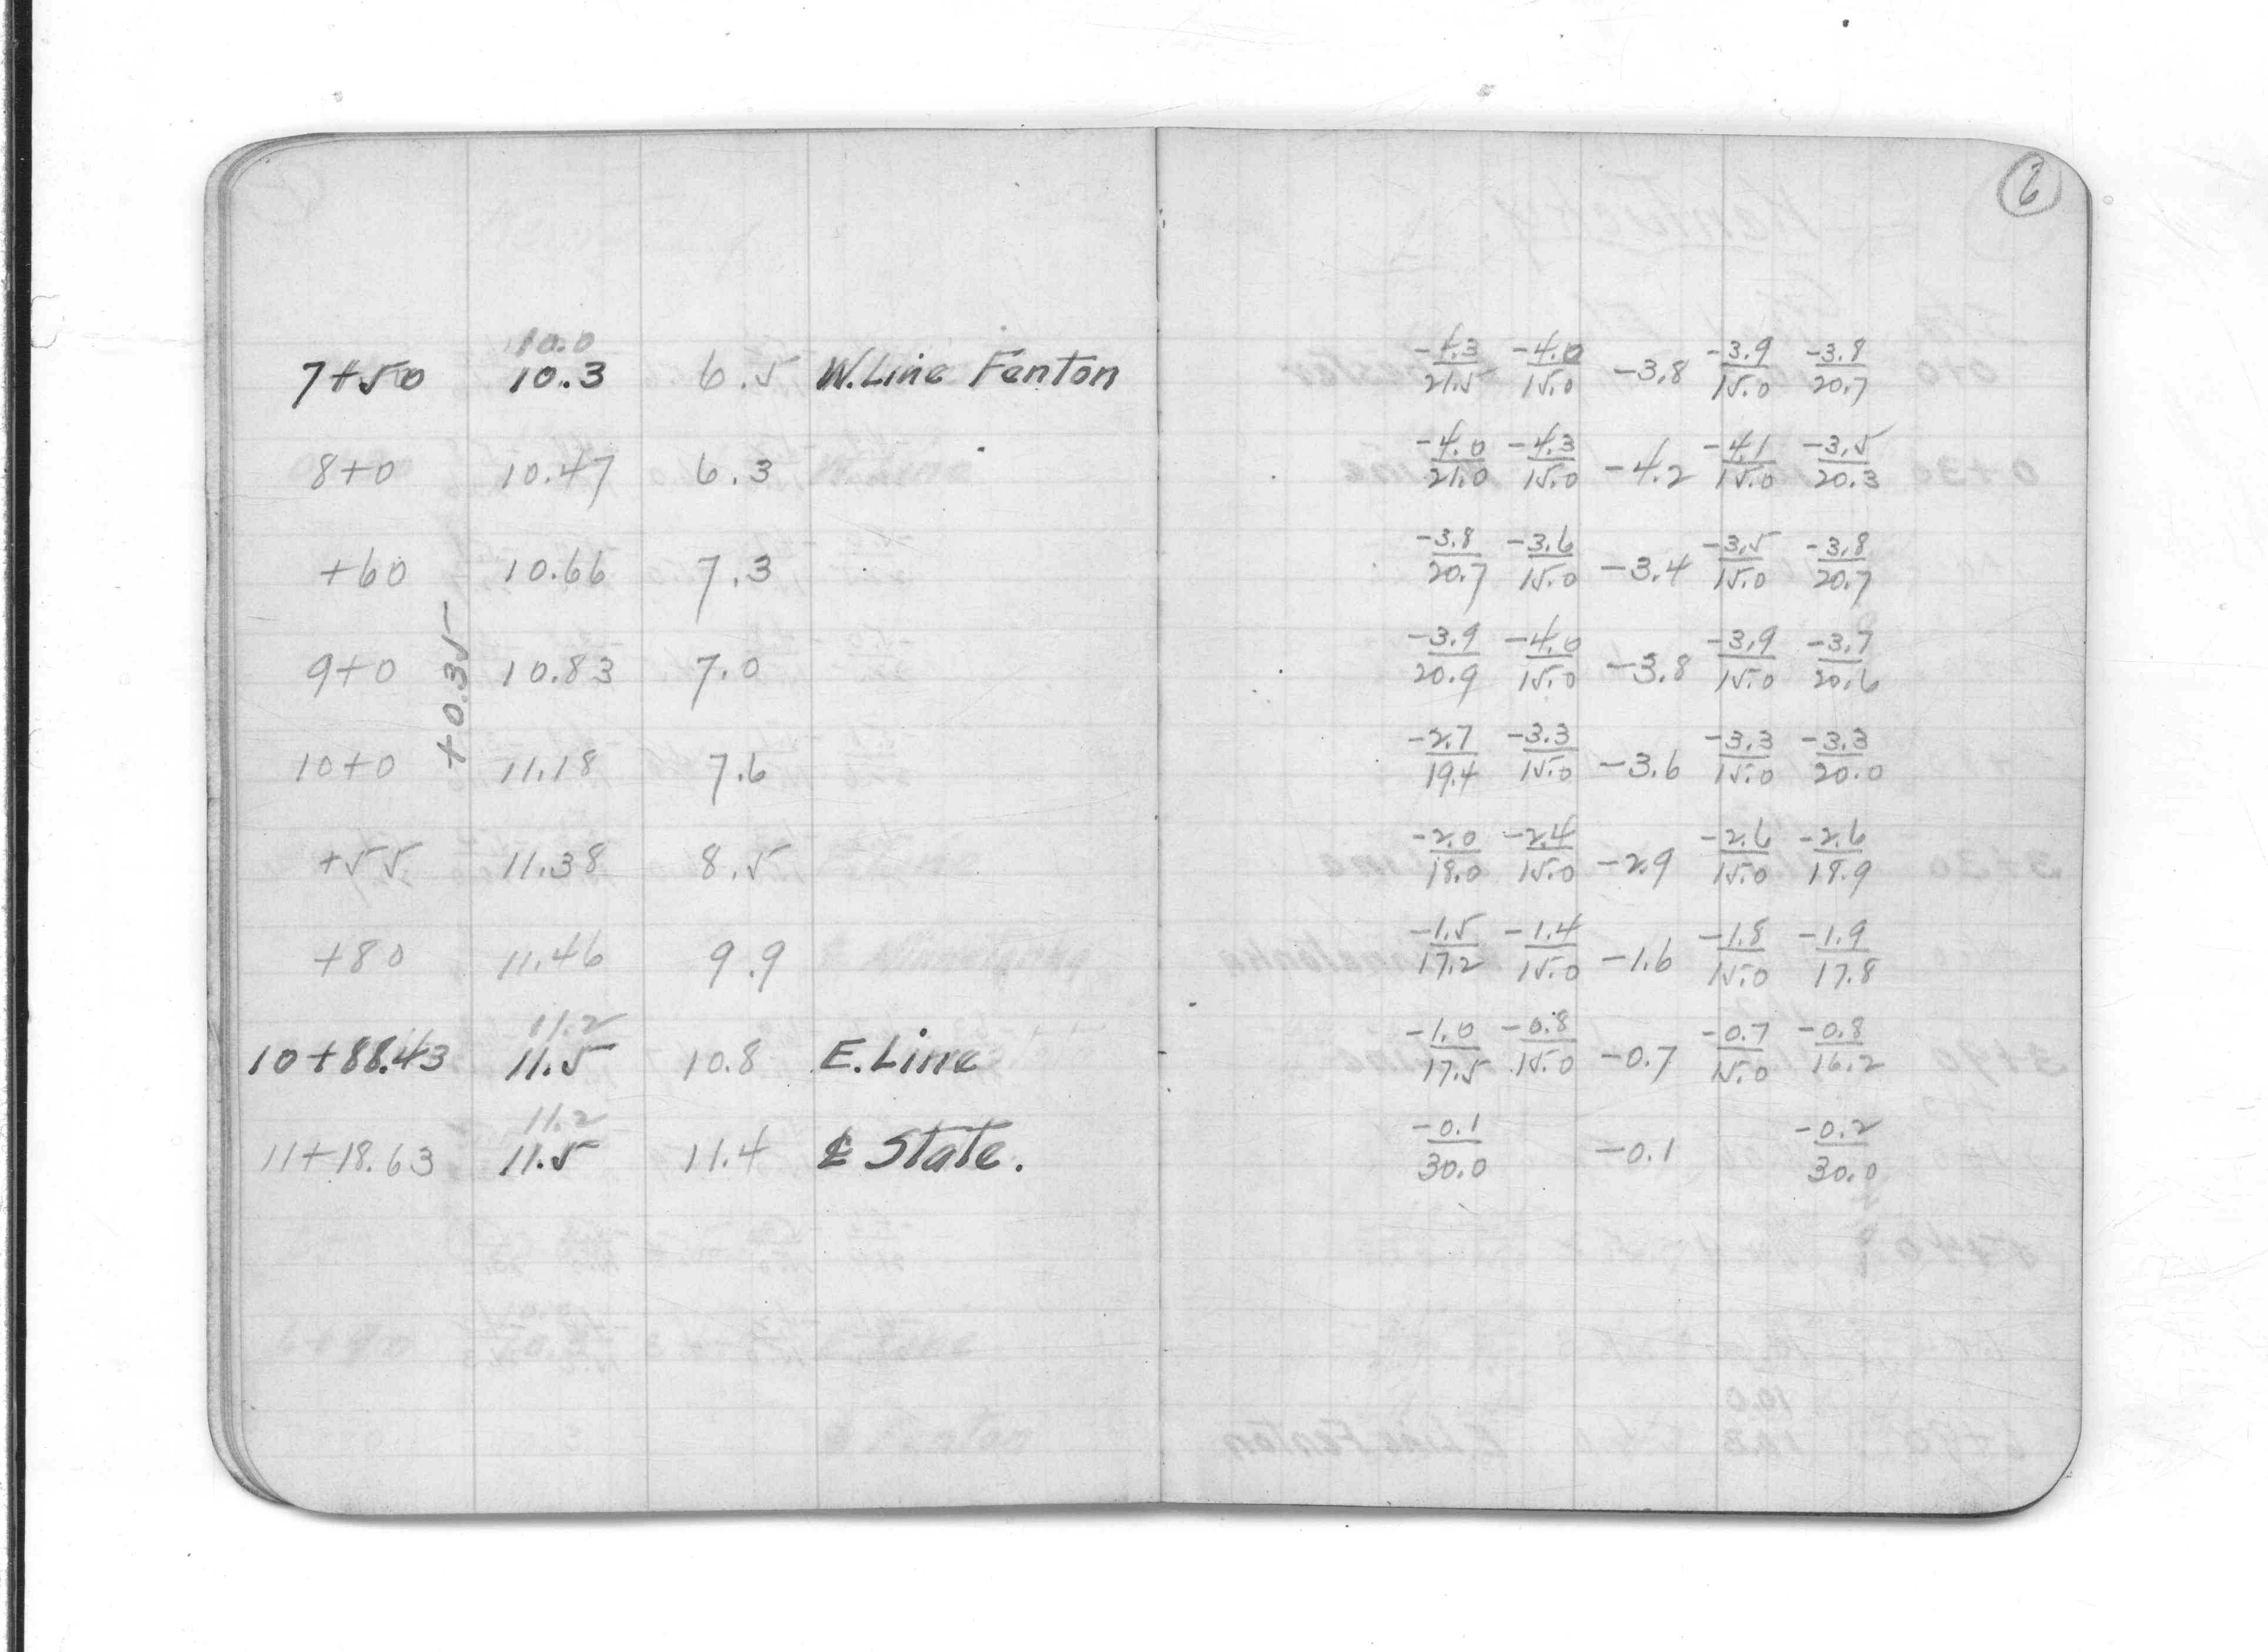 6
10.0
7+50 10.3 6.5 W.Line Fenton -4.3/21.5 -4.0/15.0 -3.8 -3.9/15.0 -3.8/20.7
8+0 10.47 6.3 -4.0/21.0 -4.3/15.0 -4.2 -4.1/15.0 -3.5/20.3
+60 10.66 7.3 -3.8/20.7 -3.6/15.0 -3.4 -3.5/15.0 -3.8/20.7
+0.35
9+0 10.83 7.0 -3.9/20.9 -4.0/15.0 -3.8 -3.9/15.0 -3.7/20.6
10+0 11.18 7.6 -2.7/19.4 -3.3/15.0 -3.6 -3.3/15.0 -3.3/20.0
+55 11.38 8.5 -2.0/18.0 -2.4/15.0 -2.9 -2.6/15.0 -2.6/18.9
+80 11.46 9.9 -1.5/17.2 -1.4/15.0 -1.6 -1.8/15.0 -1.9/17.8
11.2
10+88.43 11.5 10.8 E.Line -1.0/17.5 -0.8/15.0 -0.7 -0.7/15.0 -0.8/16.2
11.2
11+18.63 11.5 11.4 ℄ State. -0.1/30.0 -0.1 -0.2/30.0